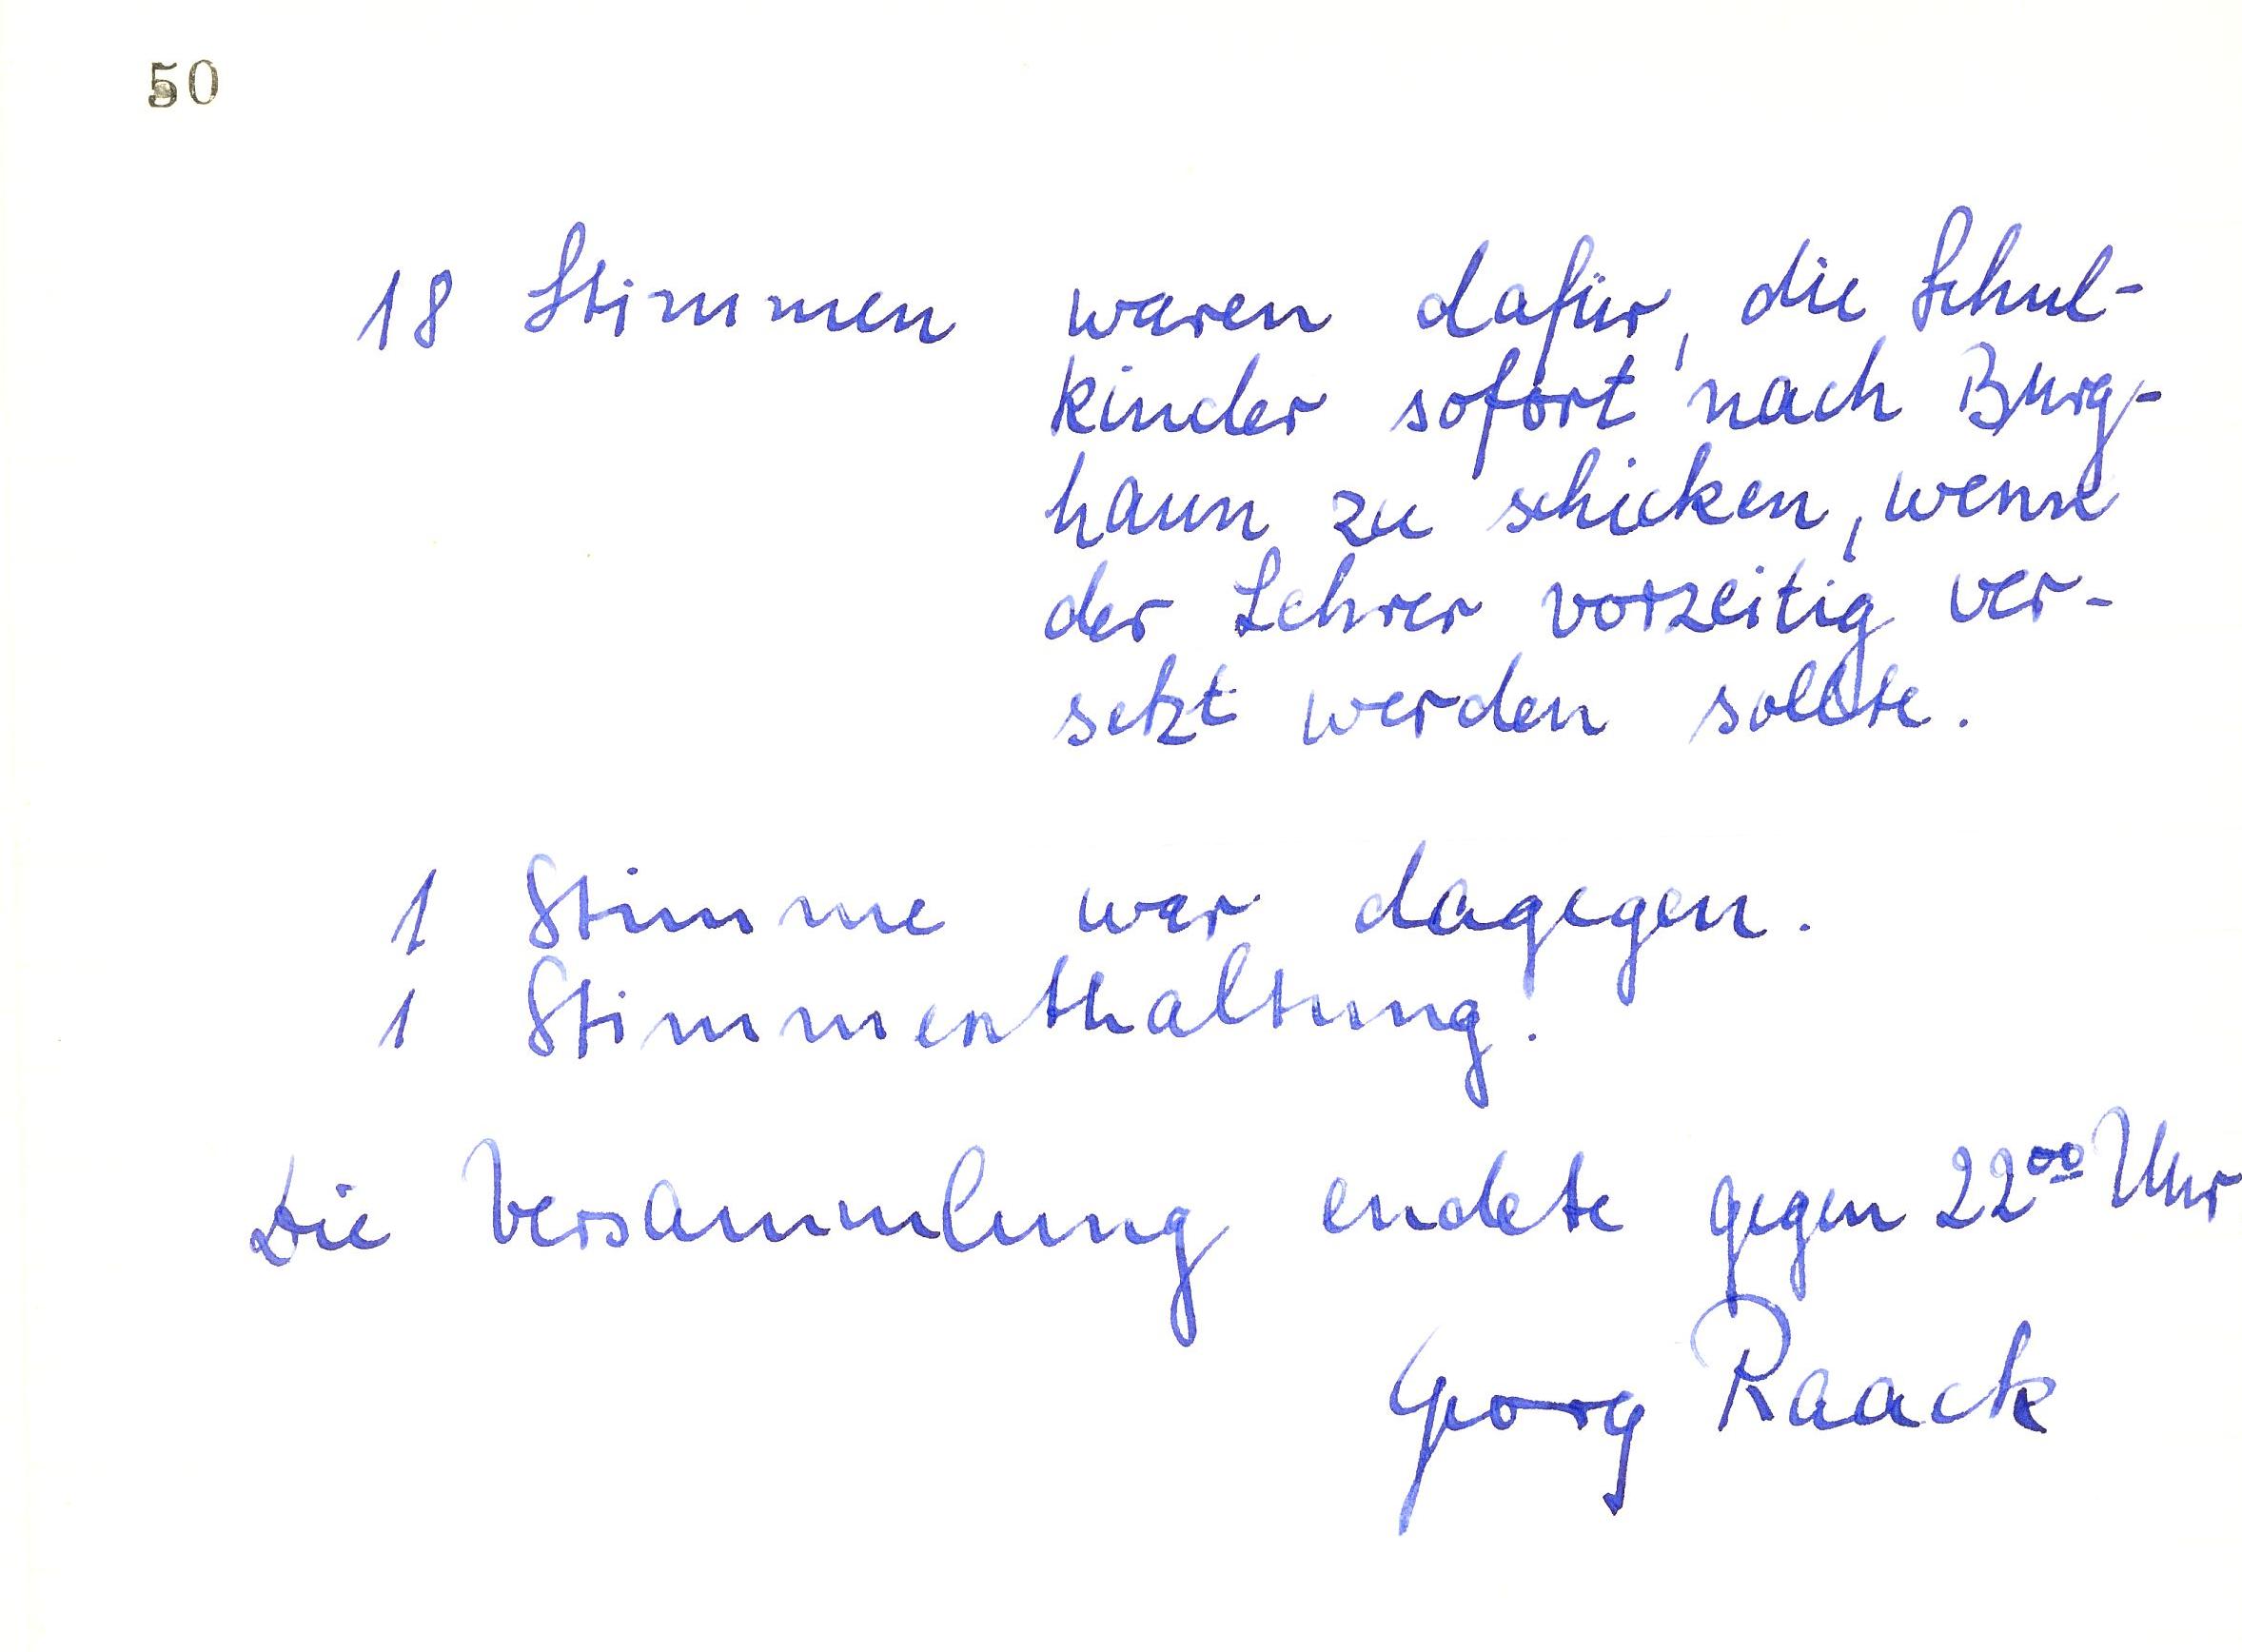 50
18 Stimmen waren dafür, die Schul-
kinder sofort nach Burg-
haun zu schicken, wenn
der Lehrer vorzeitig ver-
setzt werden sollte.
1 Stimme war dagegen.
1 Stimmenthaltung.
Die Versammlung endete gegen 22⁰⁰ Uhr
Georg Raack